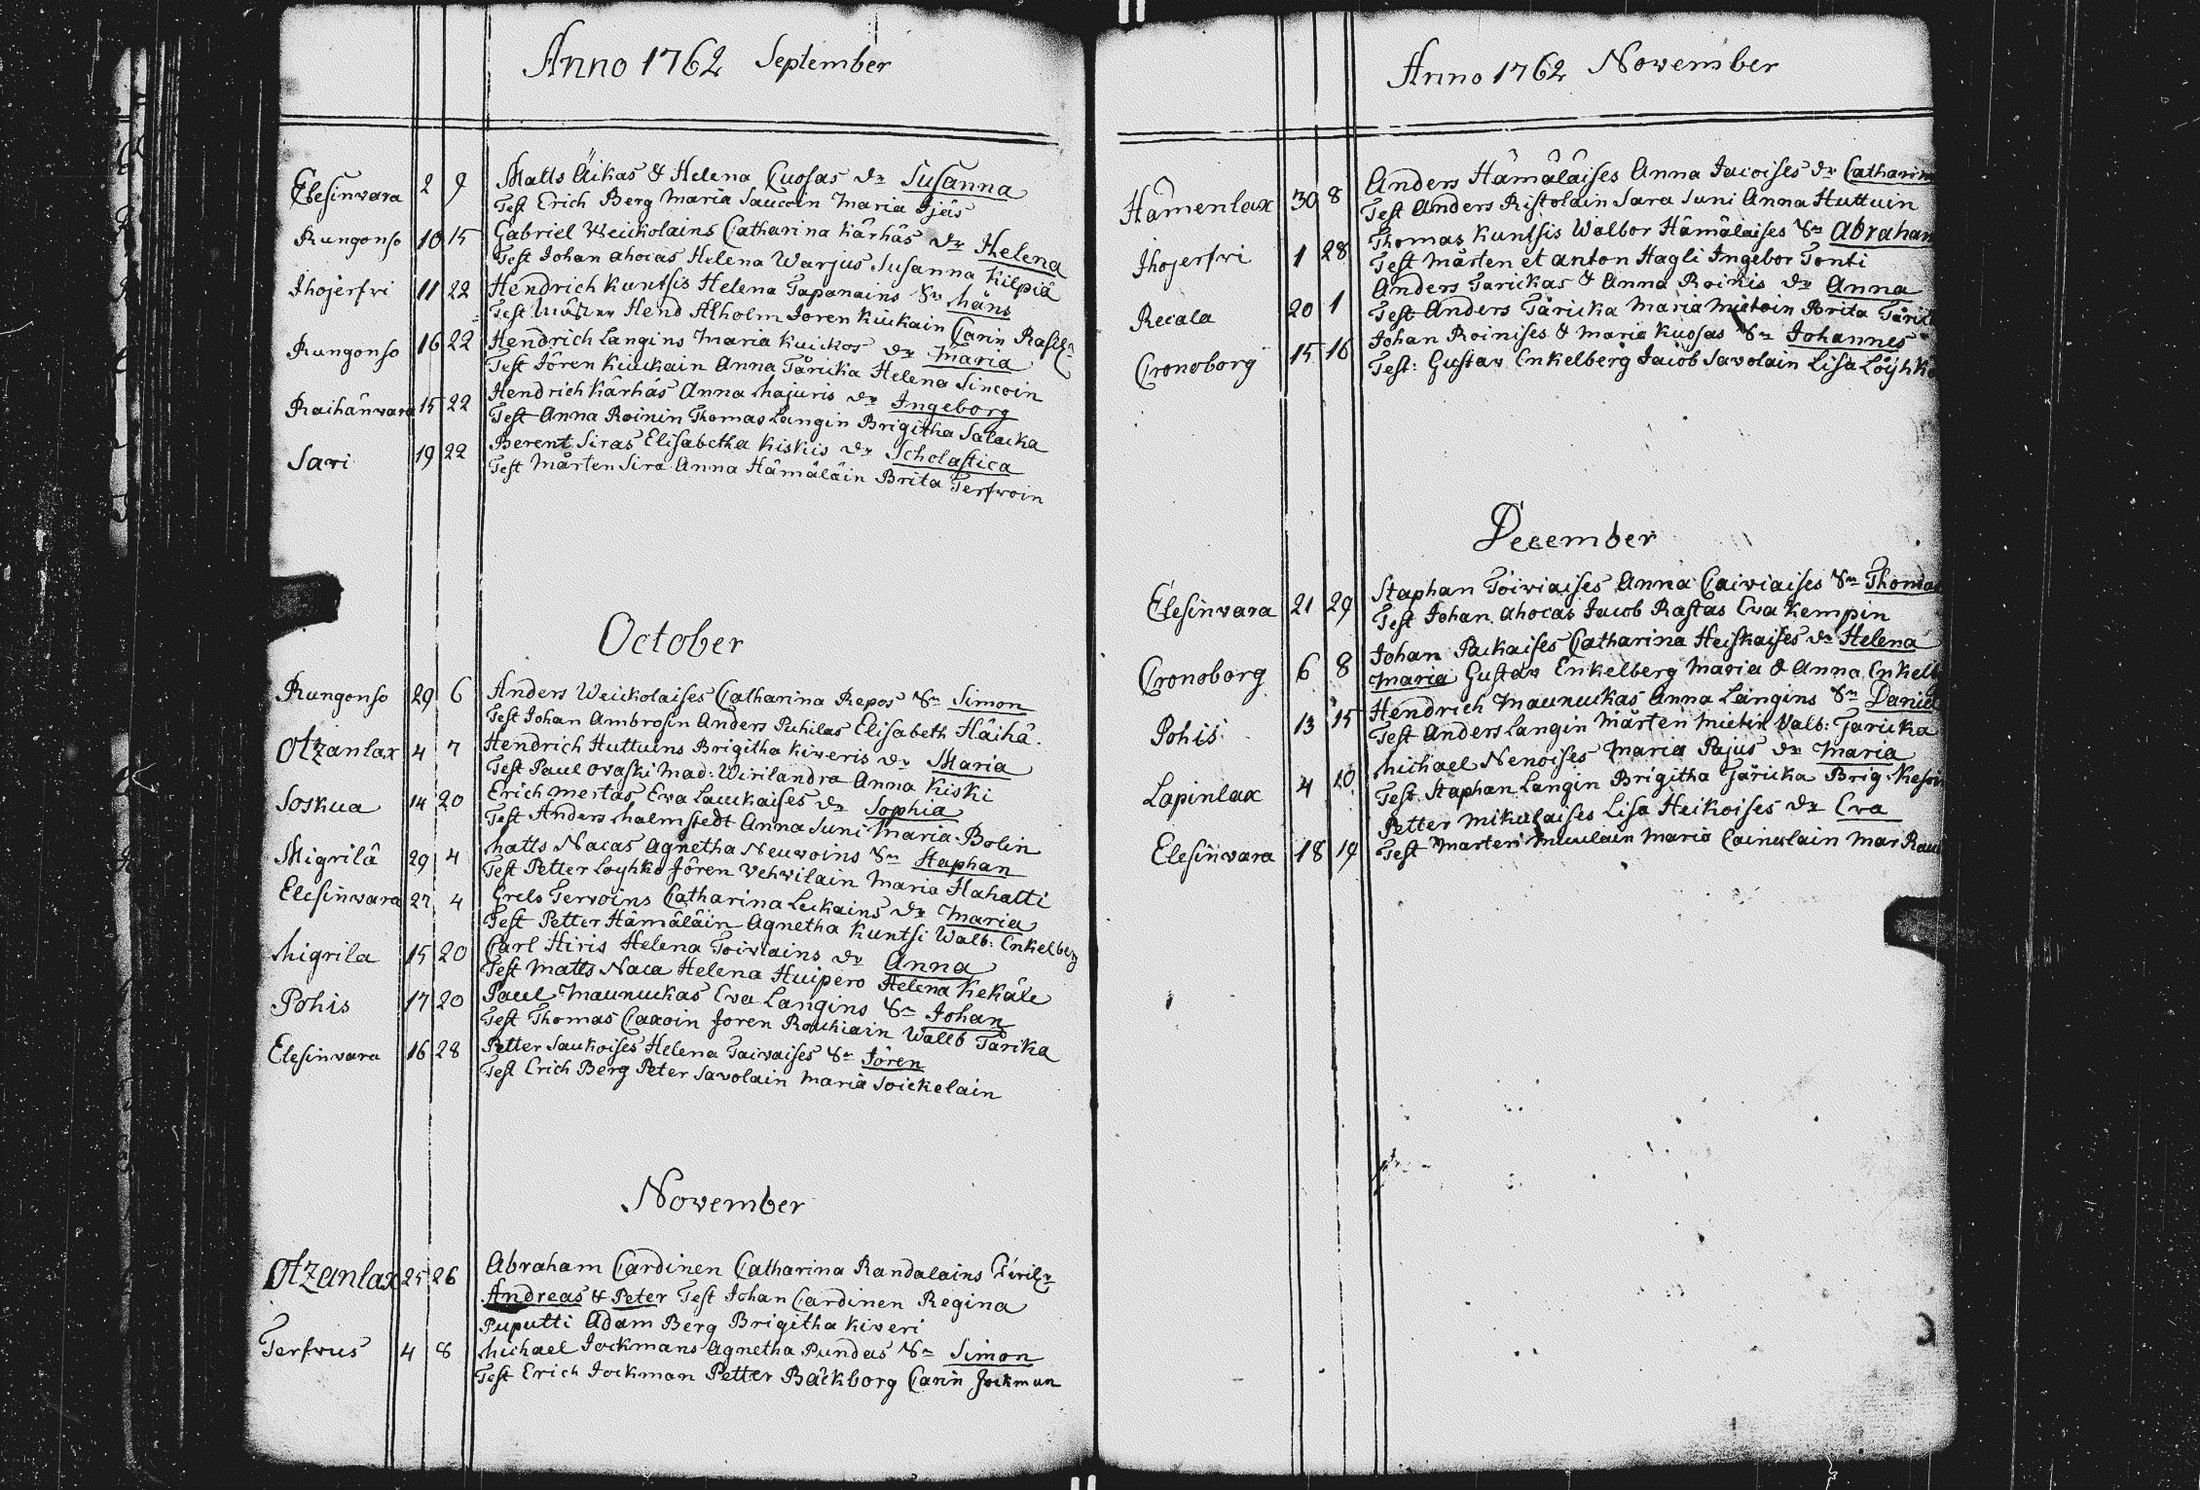 Anno 1762 September
Elesinvara 2 9 Matts Äikas & Helena Cuosas dr Susanna
Test Erich Berg Maria Saucoin Maria
Rungonso 10 15 Gabriel Weickolains Catharina Kärhäs dr Helena
Test Johan Ahocas Helena Warjus Susanna Kilpiä
Ihojerfvi 11 22 Hendrich Kuntsis Helena Tapanains Sn Måns
Test Hend Alholm Joren Kiuckain Carin
Rungonso 16 22 Hendrich Langins Maria Kuickos dr Maria
Test Jören Kiuckain Anna Täricka Helena Sincoin
Raihänvara 15 22 Hendrich Kärhäs Anna Majuris dr Ingeborg
Test Anna Roinin Thomas Langin Brigitha Salacka
Sari 19 22 Berent Siras Elisabetha Kiskis dr Scholastica
Test Mårten Sira Anna Hämäläin Brita Terfvoin
October
Rungonso 29 6 Anders Weickolaises Catharina Repos Sn Simon
Test Johan Ambrosin Anders Puhilas Elisabeth Häihä
Otzanlax 4 7 Hendrich Huttuins Brigitha Kiweris dr Maria
Test Paul Ovaski Mad: Wirilandra Anna Kiski
Soskua 14 20 Erich Mertas Eva Lauckaises dr Sophia
Test Anders Malmstedt Anna Suni Maria Bolin
Migrilä 29 4 Matts Nacas Agnetha Neuvoins Sn Staphan
Test Petter Loyhko Jören Vehvilain Maria Hahatti
Elesinvara 27 4 Grels Tervoins Catharina Leckains dr Maria
Test Petter Hämäläin Agnetha Kuntsi Walb: Enkelberg
Migrila 15 20 Carl Hiris Helena Toiviains dr Anna
Test Matts Naca Helena Huipero Helena Kekäle
Pohis 17 20 Paul Maunuckas Eva Langins Sn Johan
Test Thomas Caxoin Joren Rouhiain Wallb Tärika
Elesinvara 16 28 Petter Saukoises Helena Taivaises Sn Jören
Test Erich Berg Peter Savolain Maria Soickelain
November
Otzanlax 25 26 Abraham Cardinen Catharina Randalains
Andreas & Peter Test Johan Cardinen Regina
Puputti Adam Berg Brigitha Kiveri
Terfvus 4 8 Michael Jockmans Agnetha Pundas Sn Simon
Test Erich Jockman Petter Bäckborg Carin Jockman
Anno 1762 November
Hämenlax 30 8 Anders Hämäläises Anna Jacoises dr Catharin
Test Anders Ristolain Sara Suni Anna Huttuin
Ihojerfvi 1 28 Thomas Kuntsis Walbor Hämälaises Sn Abraham
Test Mårten et Anton Hagli Ingebor Tonti
Recala 20 1 Anders Tarickas & Anna Roinis dr Anna
Test Anders Täricka Maria Mietoin Brita
Cronoborg 15 16 Johan Roinises & Maria Kuosas Sn Johannes
Test: Gustav Enkelberg Jacob Savolain Lisa
December
Elesinvara 21 29 Staphan Toiviaises Anna Caiviaises Sn Thomas
Test Johan Ahocas Jacob Rastas Eva Kempin
Cronoborg 6 8 Johan Packaises Catharina Heiskaises dr Helena
Maria Gustav Enkelberg Maria & Anna Enkelb
Pohis 13 15 Hendrich Maunuckas Anna Längins Sn Daniel
Test Anders Langin Mårten Mietin Valb: Taricka
Lapinlax 4 10 Michael Nenoises Maria Pajus dr Maria
Test Staphan Langin Brigitha Täricka Brig.
Elesinvara 18 19 Petter Mikulaises Lisa Heikoises dr Eva
Test Marten Miculain Maria Cainulain Mar